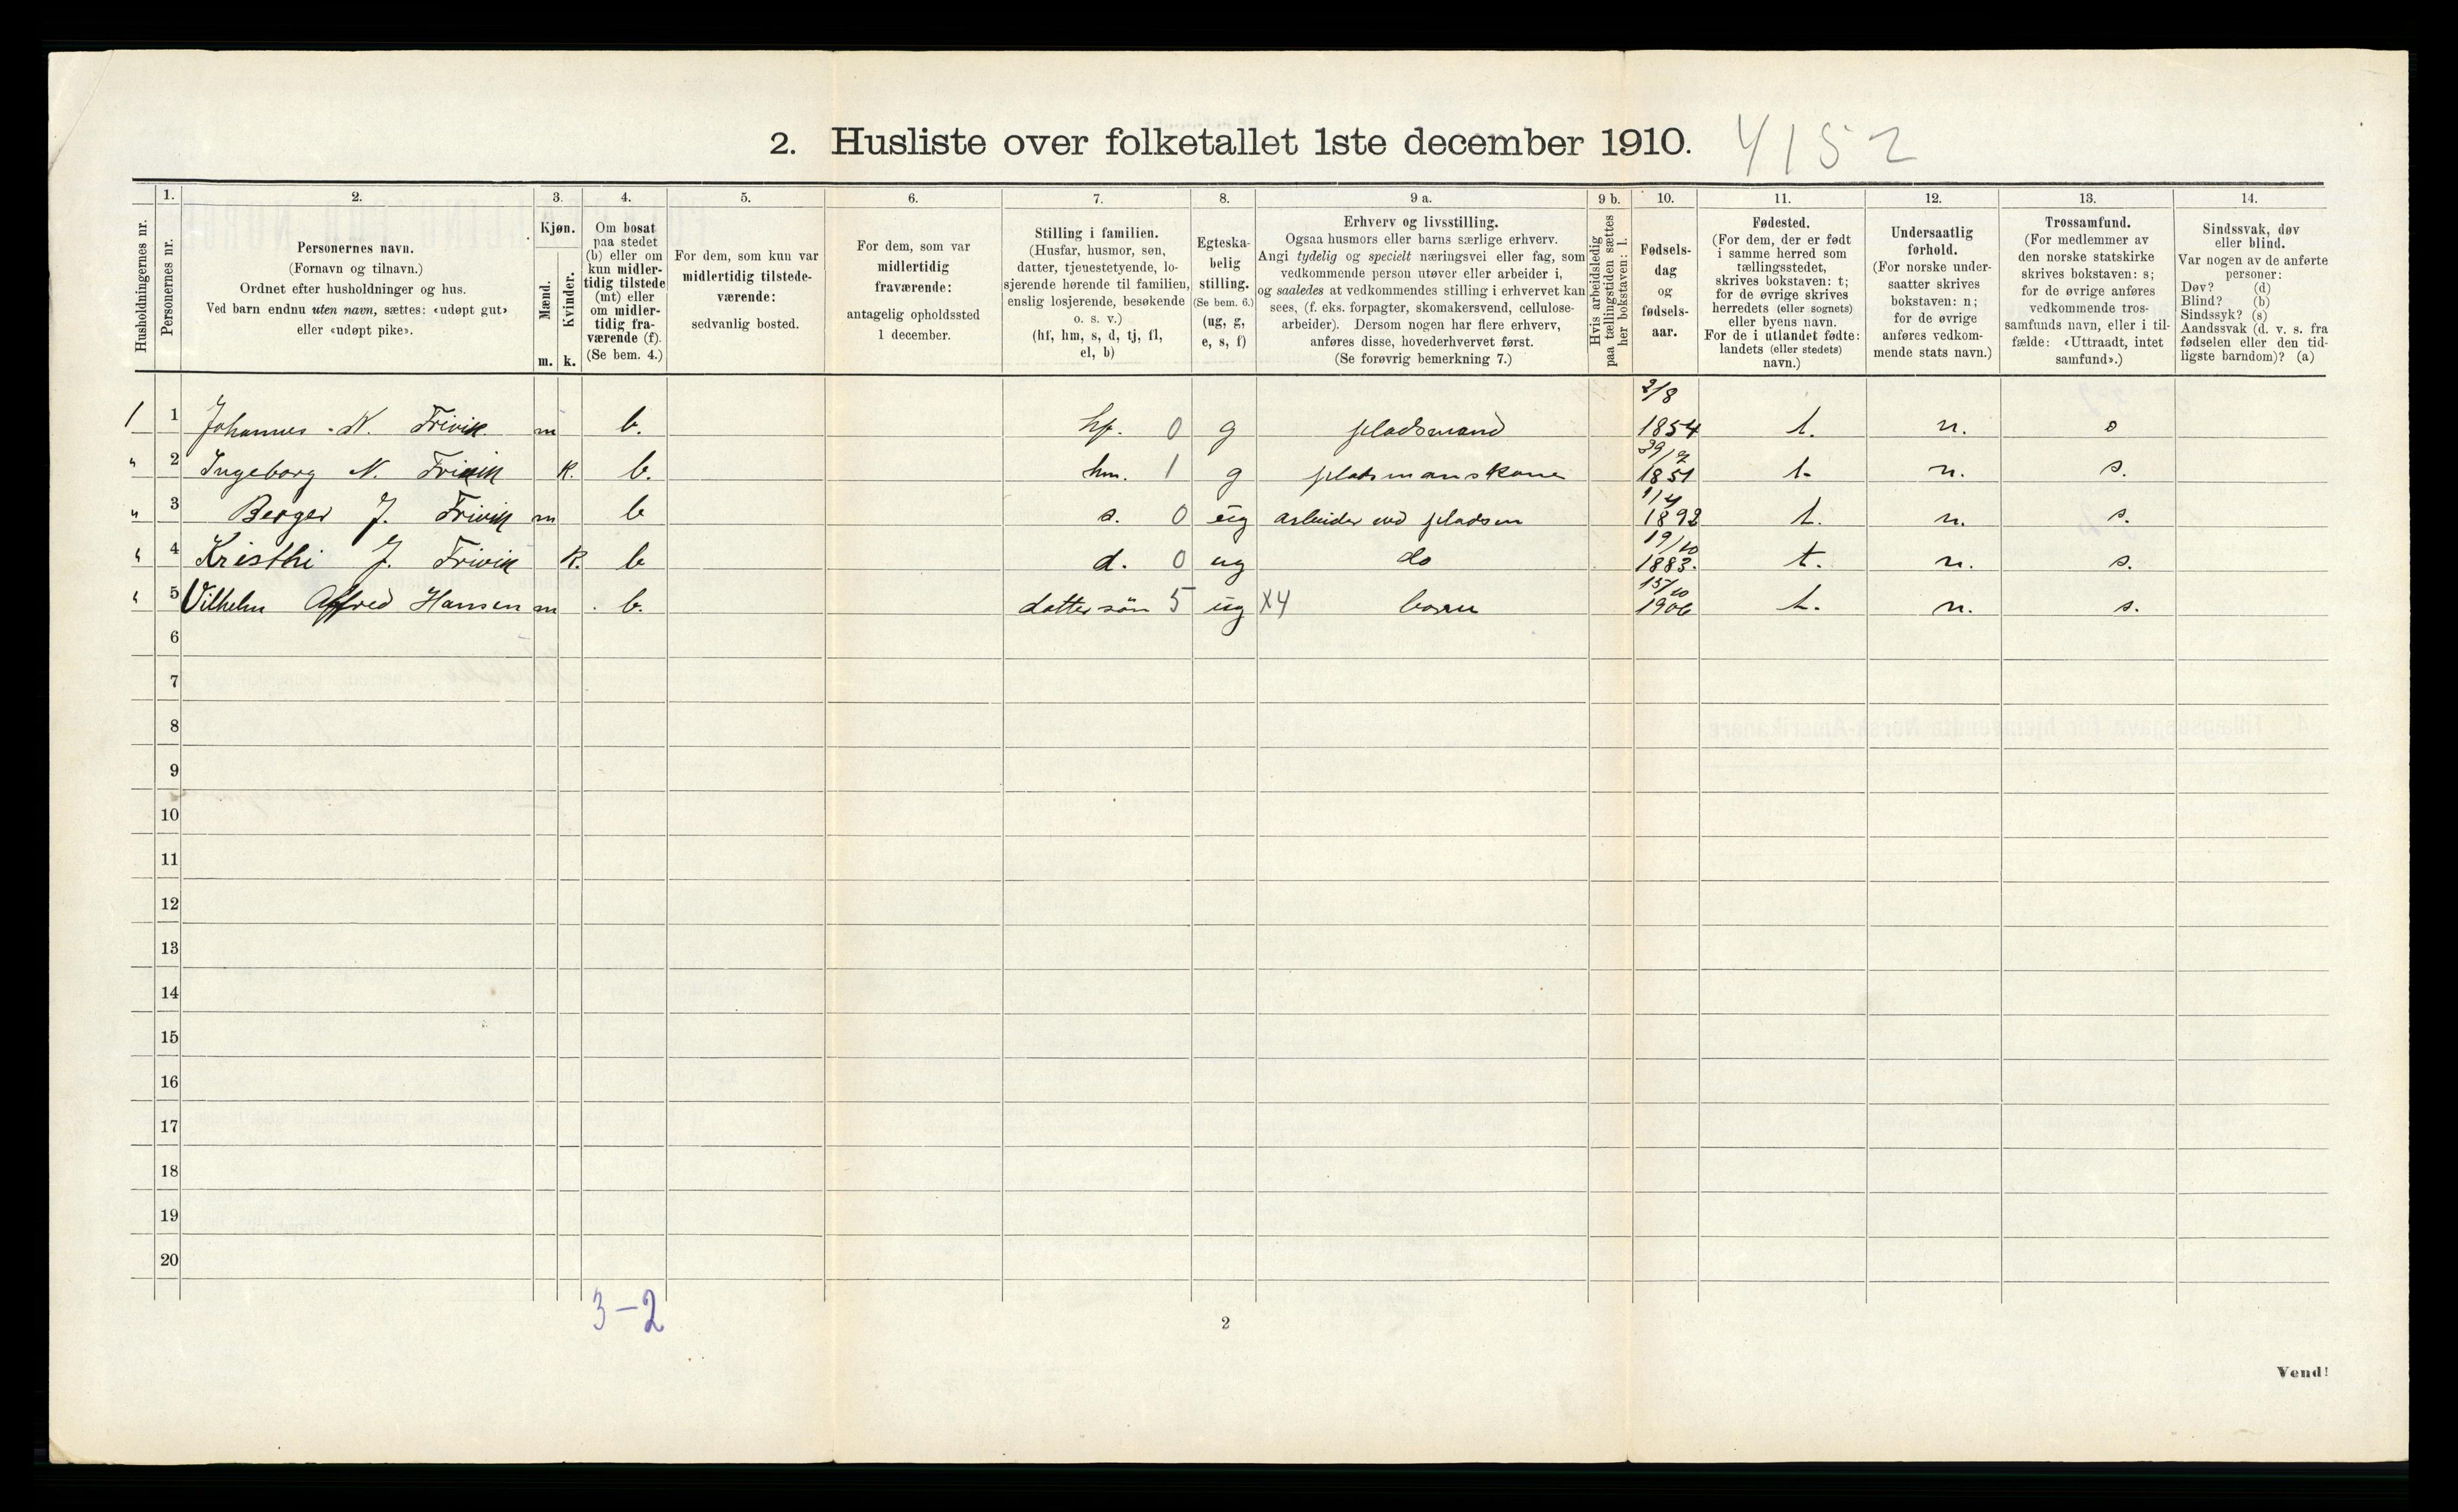 2. Husliste over folketallet 1ste december 1910. 4152
Husholdningernes nr.
1. Personernes nr.
2. Personernes navn.
(Fornavn og tilnavn.)
Ordnet efter husholdninger og hus.
Ved barn endnu uten navn, sættes: «udøpt gut»
eller «udøpt pike».
3. Kjøn.
Mænd. m.
Kvinder. k.
4. Om bosat
paa stedet
(b) eller om
kun midler-
tidig tilstede
(mt) eller
om midler-
tidig fra-
værende (f).
(Se bem. 4.)
5. For dem, som kun var
midlertidig tilstede-
værende:
sedvanlig bosted.
6. For dem, som var
midlertidig
fraværende:
antagelig opholdssted
1 december.
7. Stilling i familien.
(Husfar, husmor, søn,
datter, tjenestetyende, lo-
sjerende hørende til familien,
enslig losjerende, besøkende
o. s. v.)
(hf, hm, s, d, tj, fl,
el, b)
8. Egteska-
belig
stilling.
(Se bem. 6.)
(ug, g,
e, s, f)
9 a. Erhverv og livsstilling.
Ogsaa husmors eller barns særlige erhverv.
Angi tydelig og specielt næringsvei eller fag, som
vedkommende person utøver eller arbeider i,
og saaledes at vedkommendes stilling i erhvervet kan
sees, (f. eks. forpagter, skomakersvend, cellulose-
arbeider). Dersom nogen har flere erhverv,
anføres disse, hovederhvervet først.
(Se forøvrig bemerkning 7.)
9 b. Hvis arbeidsledig
paa tællingstiden sættes
her bokstaven: l.
10. Fødsels-
dag
og
fødsels-
aar.
11. Fødested.
(For dem, der er født
i samme herred som
tællingsstedet,
skrives bokstaven: t;
for de øvrige skrives
herredets (eller sognets)
eller byens navn.
For de i utlandet fødte:
landets (eller stedets)
navn.)
12. Undersaatlig
forhold.
(For norske under-
saatter skrives
bokstaven: n;
for de øvrige
anføres vedkom-
mende stats navn.)
13. Trossamfund.
(For medlemmer av
den norske statskirke
skrives bokstaven: s;
for de øvrige anføres
vedkommende tros-
samfunds navn, eller i til-
fælde: «Uttraadt, intet
samfund».)
14. Sindssvak, døv
eller blind.
Var nogen av de anførte
personer:
Døv? (d)
Blind? (b)
Sindssyk? (s)
Aandssvak (d. v. s. fra
fødselen eller den tid-
ligste barndom)? (a)
1 1 Johannes N. Frivik m b. hf. 0 g pladsmand 2/8 1854 t. n. s
" 2 Ingeborg N. Frivik k. b. hm. 1 g pladsmanskone 1851 t. n. s.
" 3 Berger J. Frivik m b s. 0 ug arbeider ved pladsen 1892 t. n. s.
" 4 Kristhi J. Frivik k. b d. 0 ug do 19/10 1883. t. n. s.
" 5 Vilhelm Alfred Hansen m b. dattersön 5 ug X4 barn 15/10 1906 t. n. s.
6
7
8
9
10
11
12
13
14
15
16
17
18
19
20
3-2
2
Vend!